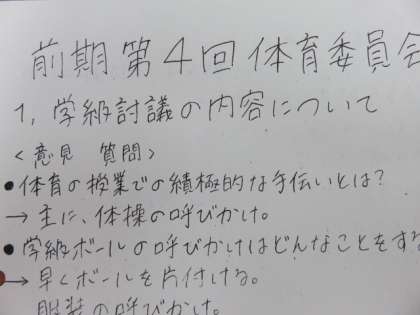 前期第4回体育委員会
1, 学級討議の内容について
<意見 質問>
●体育の授業での積極的な手伝いとは?
→主に、体操の呼びかけ。
●学級ボールの呼びかけはどんなことをする
→早くボールを片付ける。
服装の呼びかけ。